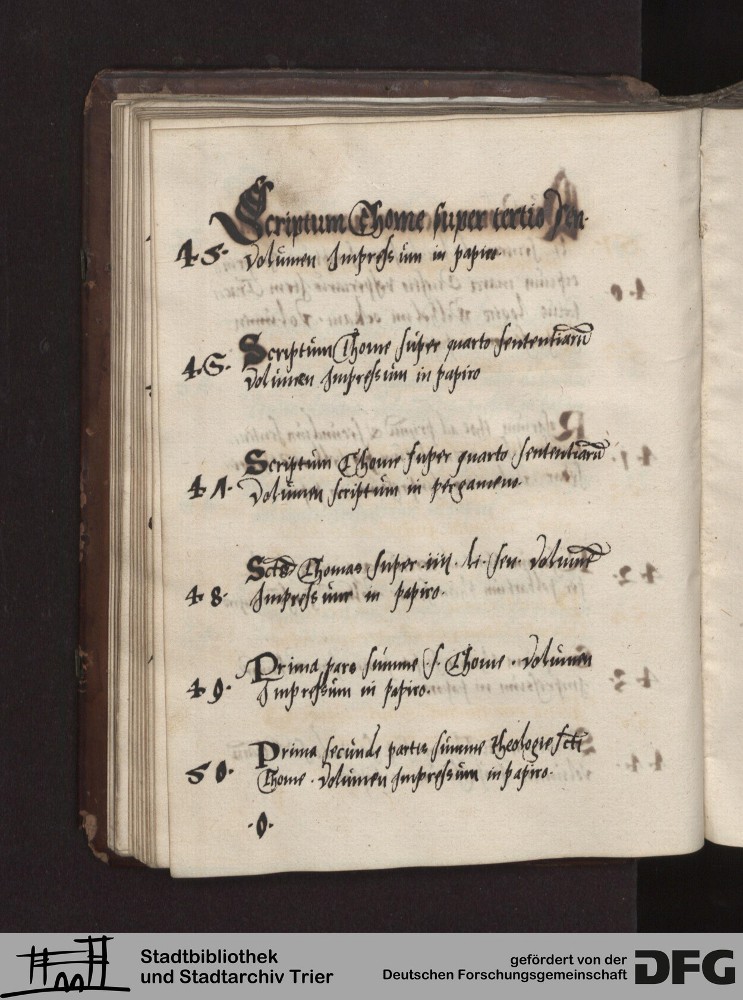 Scriptum Thome super tertio sen.
45. volumen Impressum in papiro.
46. Scriptum Thome super quarto sententiarū
volumen Impressum in papiro
47. Scriptum Thome super quarto sententiarū
volumen scriptum in pergameno.
48. Sctūs Thomas super .iiii. li. sen. volumē
Impressum in papiro.
49. Prima pars summe s. Thome. volumen
Impressum in papiro.
50. Prima secunde partis summe theologie scti
Thome. volumen Impressum in papiro.
.O.
Stadtbibliothek
und Stadtarchiv Trier
gefördert von der
Deutschen Forschungsgemeinschaft
DFG